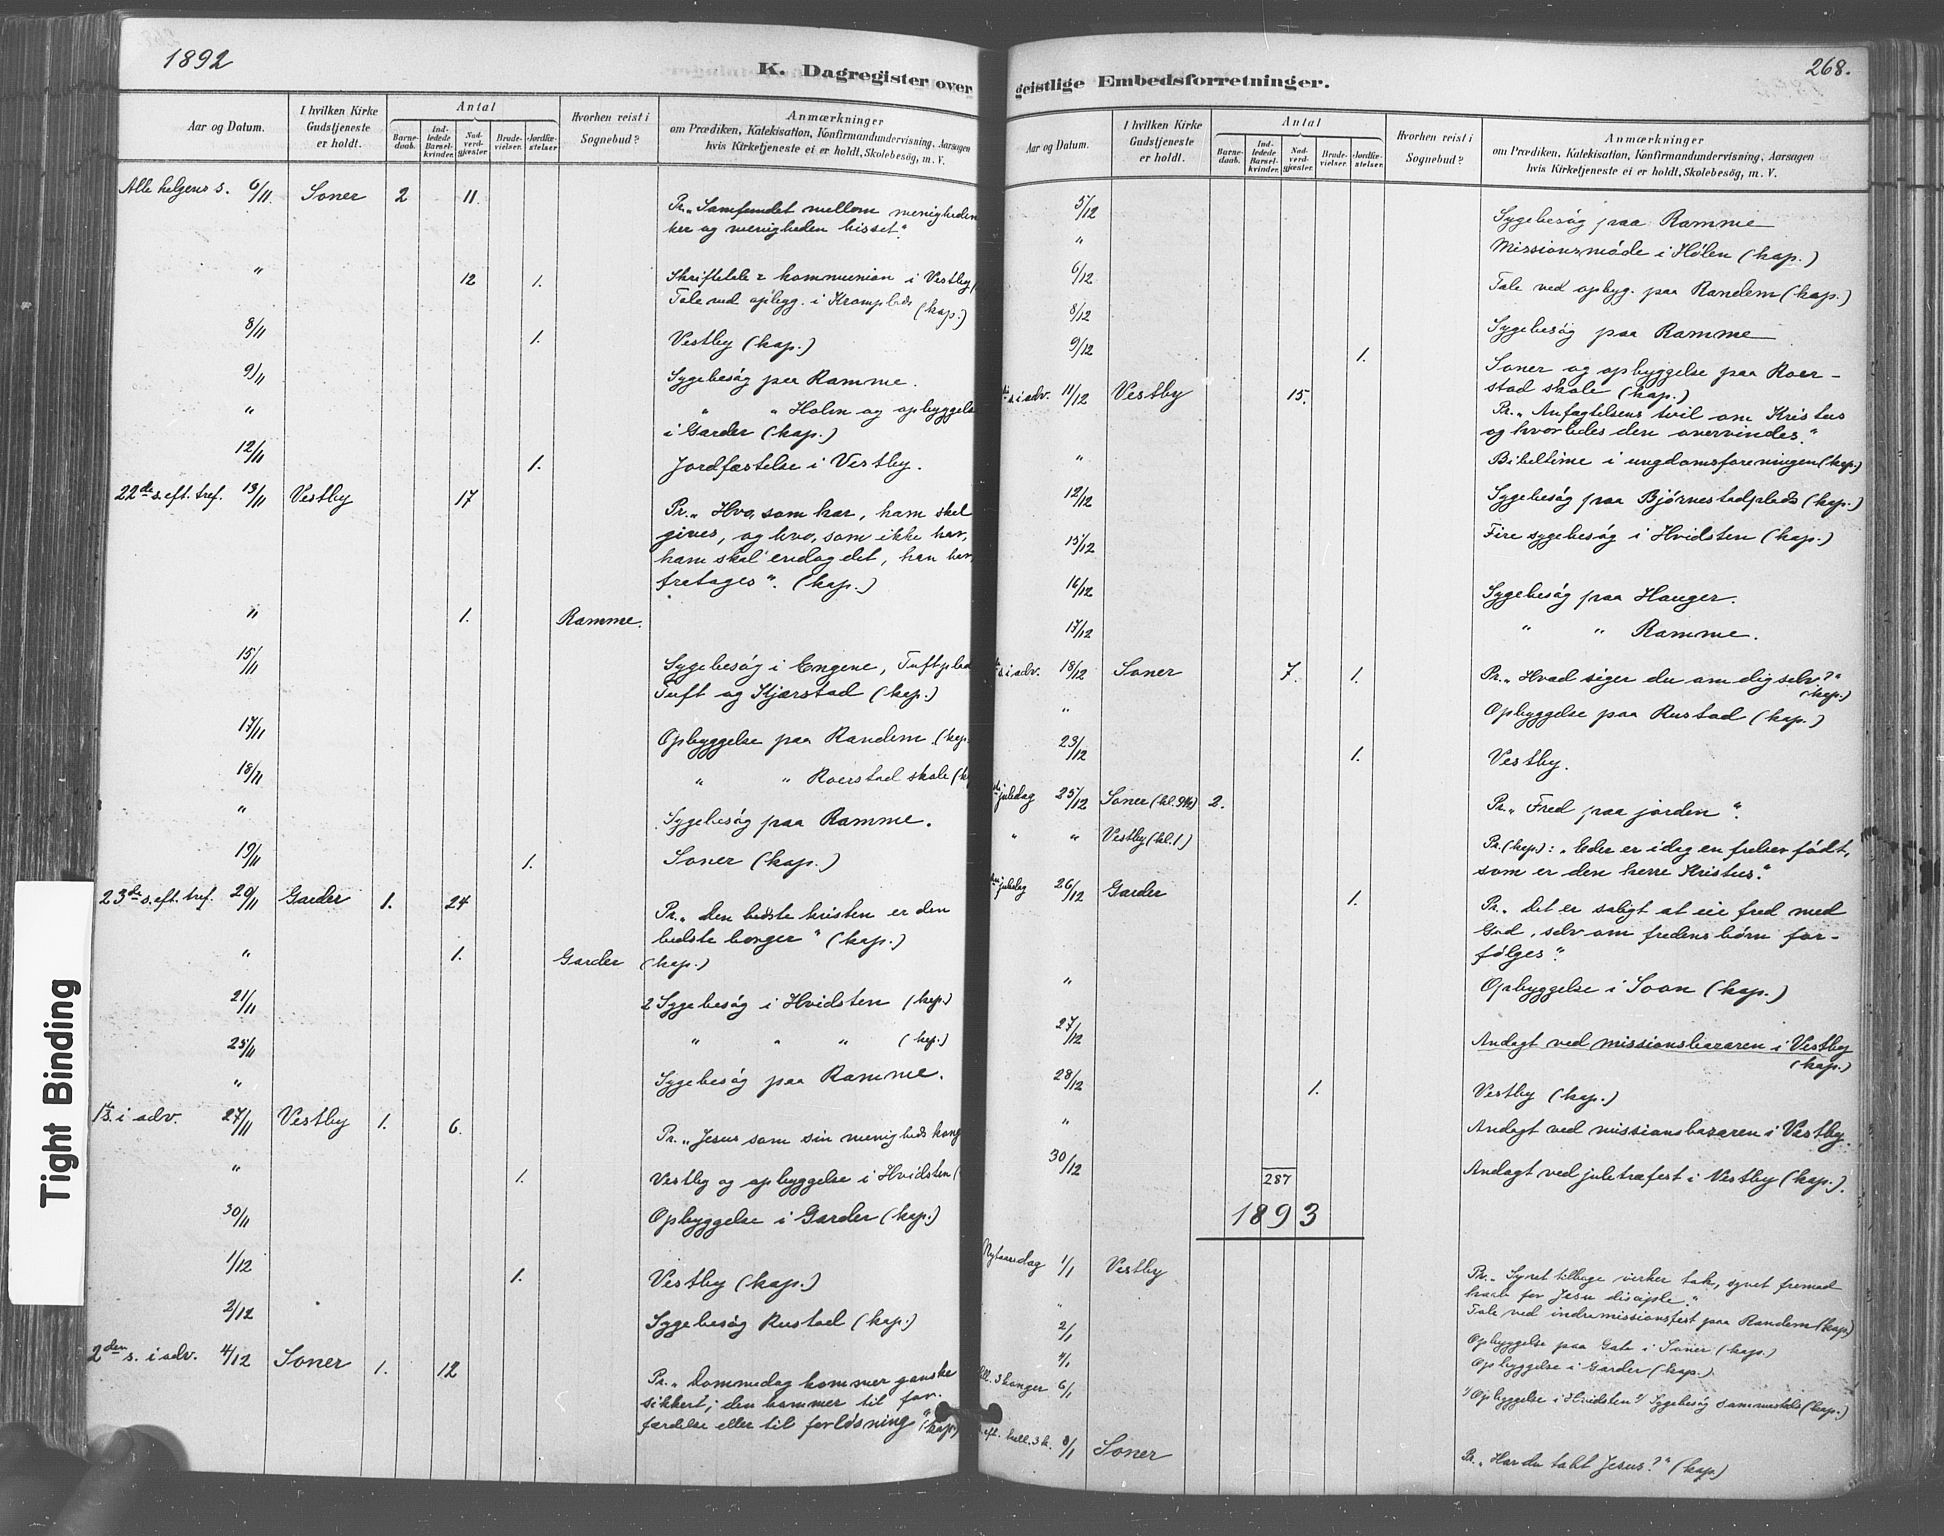 1892
K. Dagregister over
Aar og Datum.
I hvilken Kirke Gudstjeneste er holdt.
Antal
Barne-daab.
Ind-ledede Barsel-kvinder.
Nad-verd-gjæster.
Brude-vielser.
Jordfæ-stelser
Hvorhen reist i Sognebud?
Anmærkninger
om Prædiken, Katekisation, Konfirmandundervisning, Aarsagen
hvis Kirketjeneste ei er holdt, Skolebesøg, m. V.
Alle helgens s. 6/11 Soner 2 11. Pr. „Samfundet mellem menigheden
her og menigheden hisset“.
„ 12 1. Skriftetale & kommunion i Vestby (
Tale ved opbygg. i Kramplads (kap.)
8/11 1. Vestby (kap.)
9/11 Sygebesøg paa Ramme.
„ „ „ Holen og opbyggelse
i Garder (kap.)
12/11 1. Jordfæstelse i Vestby.
22de s. eft. tref. 13/11 Vestby 17 Pr. „Hvo, som har, ham skal
gives, og hvo, som ikke har,
ham skal endog det, han har,
fratages“. (kap.)
„ 1. Ramme.
15/11 Sygebesøg i Engene, Tuftplad
Tuft og Kjærstad (kap.)
17/11 Opbyggelse paa Randem (kap.
18/11 „ „ Roerstad skole (k
„ Sygebesøg paa Ramme.
19/11 1. Soner (kap.)
23de s. eft. tref. 20/11 Garder 1. 24 Pr. „Den bedste kristen er den
bedste borger“ (kap.)
„ 1. Garder (kap.)
21/11 2 Sygebesøg i Hvidsten (kap.)
25/11 „ „ „ (kap.)
„ Sygebesøg paa Ramme.
1ste s. i adv. 27/11 Vestby 1. 6. Pr. „Jesus som sin menigheds kong
„ 1. Vestby og opbyggelse i Hvidsten (
30/11 Opbyggelse i Garder (kap.)
1/12 1. Vestby (kap.)
2/12 Sygebesøg Rustad (kap.)
2den s. i adv. 4/12 Soner 1. 12 Pr. „Dommedag kommer ganske
sikkert; den kommer til for-
færdelse eller til forløsning“ (kap.)
Tight Binding
268.
geistlige Embedsforretninger.
Aar og Datum.
I hvilken Kirke Gudstjeneste er holdt.
Antal
Barne-daab.
Ind-ledede Barsel-kvinder.
Nad-verd-gjæster.
Brude-vielser.
Jordfæ-stelser
Hvorhen reist i Sognebud?
Anmærkninger
om Prædiken, Katekisation, Konfirmandundervisning, Aarsagen
hvis Kirketjeneste ei er holdt, Skolebesøg, m. V.
5/12 Sygebesøg paa Ramme
„ Missionsmøde i Hølen (kap.)
6/12 Tale ved opbyg. paa Randem (kap.)
8/12 Sygebesøg paa Ramme
9/12 1. Soner og opbyggelse paa Roer-
stad skole (kap.)
s. i adv. 11/12 Vestby 15. Pr. „Anfægtelsens tvil om Kristus
og hvorledes den overvindes.“
„ Bibeltime i ungdomsforeningen (kap.)
12/12 Sygebesøg paa Bjørnestadplads (kap.)
15/12 Fire sygebesøg i Hvidsten (kap.)
16/12 Sygebesøg paa Hauger.
17/12 „ „ Ramme.
s. i adv. 18/12 Soner 7. 1. Pr. „Hvad siger du om dig selv?“
(kap.)
„ Opbyggelse paa Rustad (kap.)
23/12 1. Vestby.
juledag 25/12 Soner (kl. 9½) 2. Pr. „Fred paa jorden“.
„ „ Vestby (kl. 1) Pr. (kap.): „Eder er idag en frelser født,
som er den herre Kristus.“
juledag 26/12 Garder 1. Pr. „Det er saligt at eie fred med
Gud, selv om fredens børn for-
følges“.
„ Opbyggelse i Soon (kap.)
27/12 Andagt ved missionsbazaren i Vestby
(kap.)
28/12 1. Vestby (kap.)
„ Andagt ved missionsbazaren i Vestby.
30/12 287 Andagt ved juletræfest i Vestby (kap.).
1893
Nytaarsdag 1/1 Vestby Pr. „Synet tilbage virker tak, synet fremad
haab for Jesu disciple.“
„ Tale ved indremissionsfest paa Randem (kap)
2/1 Opbyggelse paa Gate i Soner (kap.)
4/1 Opbyggelse i Garder (kap.)
hell. 3 konger 6/1 1) Opbyggelse i Hvidsten 2) Sygebesøg sammesteds (kap.)
s. eft. hell. 3 k. 8/1 Soner Pr. „Har du tabt Jesus?“ (kap)